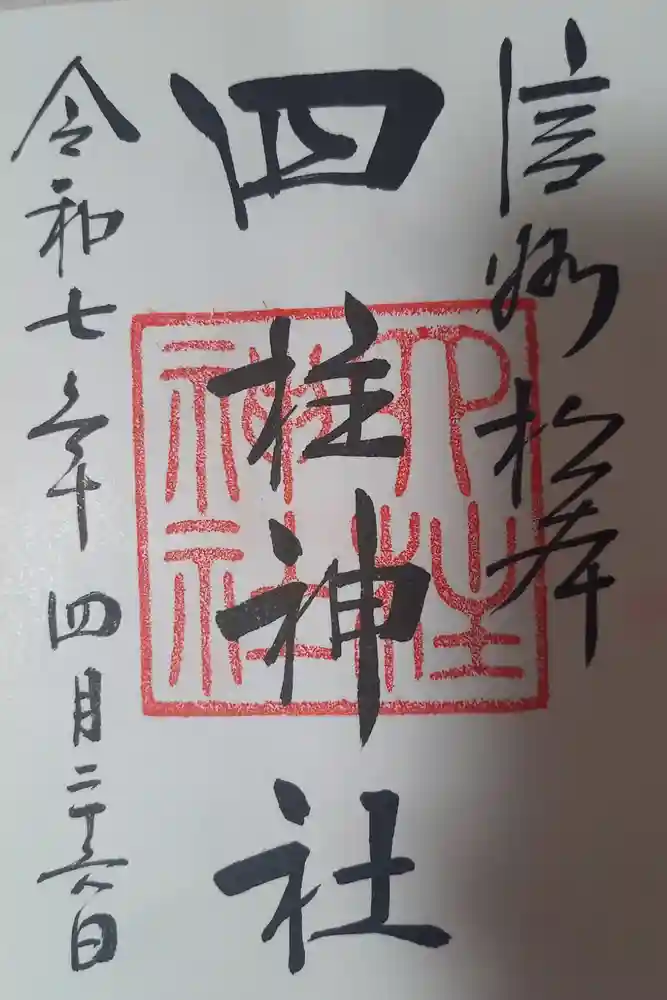 信州松本
四柱神社
令和七年四月二十六日
四柱
神社